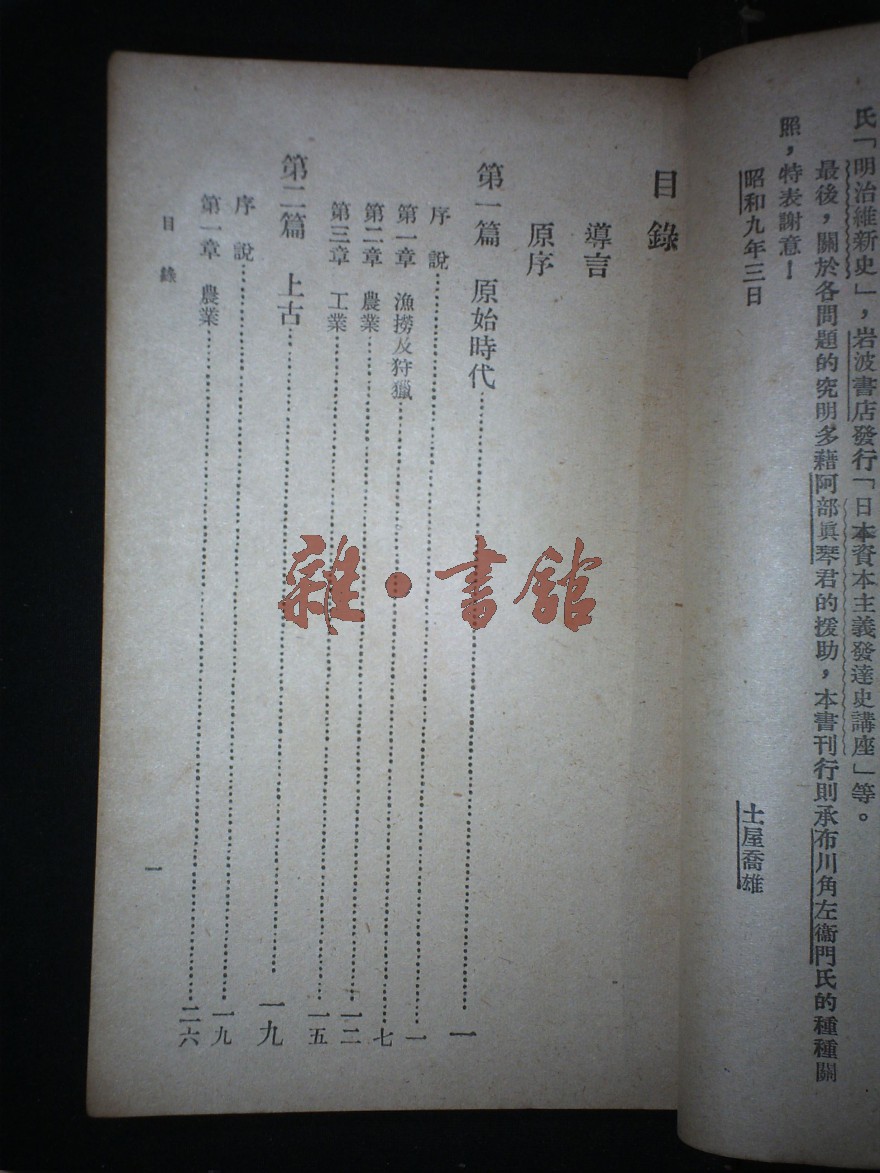 氏「明治維新史」，岩波書店發行「日本資本主義發達史講座」等。
最後，關於各問題的究明多藉阿部眞琴君的援助，本書刊行則承布川角左衞門氏的種種關
照，特表謝意！
昭和九年三日
土屋喬雄
目錄
導言
原序
第一篇 原始時代……一
序說……一
第一章 漁撈及狩獵……七
第二章 農業……一二
第三章 工業……一五
第二篇 上古……一九
序說……一九
第一章 農業……二六
目錄
一
雜·書館